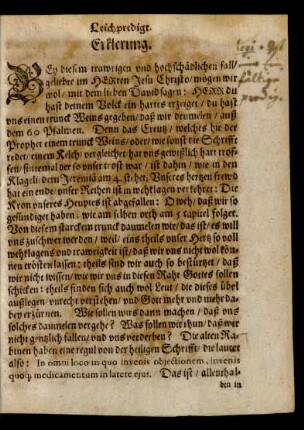 Leichpredigt.
Erklerung.
BEy diesem trawrigen vnd hochschädlichen fall/
geliebte im HErren Jesu Christo/ mögen wir
wol/ mit dem lieben David sagen: HERR du
hast deinem Volck ein hartes erzeiget/ du hast
vns einen trunck Weins gegeben/ daß wir deumelen/ auß
dem 60 Psalmen. Denn das Creutz/ welches hie der
Prophet einem trunck Weins/ oder/ wie sonst die Schrifft
redet/ einem Kelch/ vergleichet hat vns gewißlich hart troffen/
sintemal der so unser trost war/ ist dahin/ wie in den
Klagel: dem Jeremiä am 4. stehet. Vnseres hertzen frewd
hat ein ende/ vnser Reihen ist in wehklagen verkehret: Die
Kron vnseres Heuptes ist abgefallen: O weh/ daß wir so
gesündiget haben, wie am selben orth am 5 capitel folget.
Von diesem starckem trunck daumelen wir/ das ist/ es will
vns zuschwer werden/ weil/ eins theils vnser Hertz so voll
wehklagens vnd trawrigkeit ist/ daß wir vns nicht wol können
trösten lassen: theils sind wir auch so bestürtzet/ daß
wir nicht wissen/ wie wir vns in diesen Raht Gottes sollen
schicken: theils finden sich auch wol Leut/ die dieses übel
außlegen/ vnrecht verstehen/ vnd Gott mehr vnd mehr dawey
erzürnen. Wie sollen wirs dann machen/ daß vns
solches daumelen vergehe? Was sollen wir thun/ daß wir
nicht gentzlich fallen/ vnd vns verderben? Die alten Rabinen
haben eine regul von der heiligen Schrifft/ die lautet
also: In omni loco in quo invenis objectionem, invenis
quoq; medicamentum in latere ejus. Das ist/ allenthal-
den in